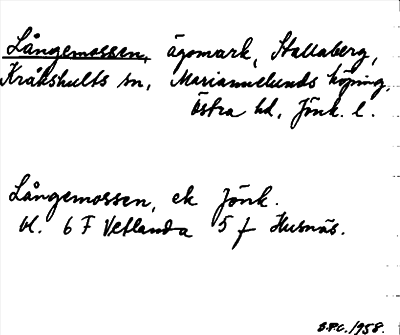 Långemossen, ägomark, Stallaberg,
Kråkshults sn, Mariannelunds köping,
Östra hd, Jönk. l.
Långemossen, ek Jönk.
bl. 6 F Vetlanda 5 f Husnäs.
S.P.G. 1958.